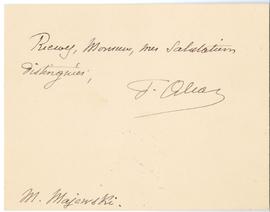 Recevez, Monsieur, mes Salutations
distinguées,
F. Alcan
M. Majewski.